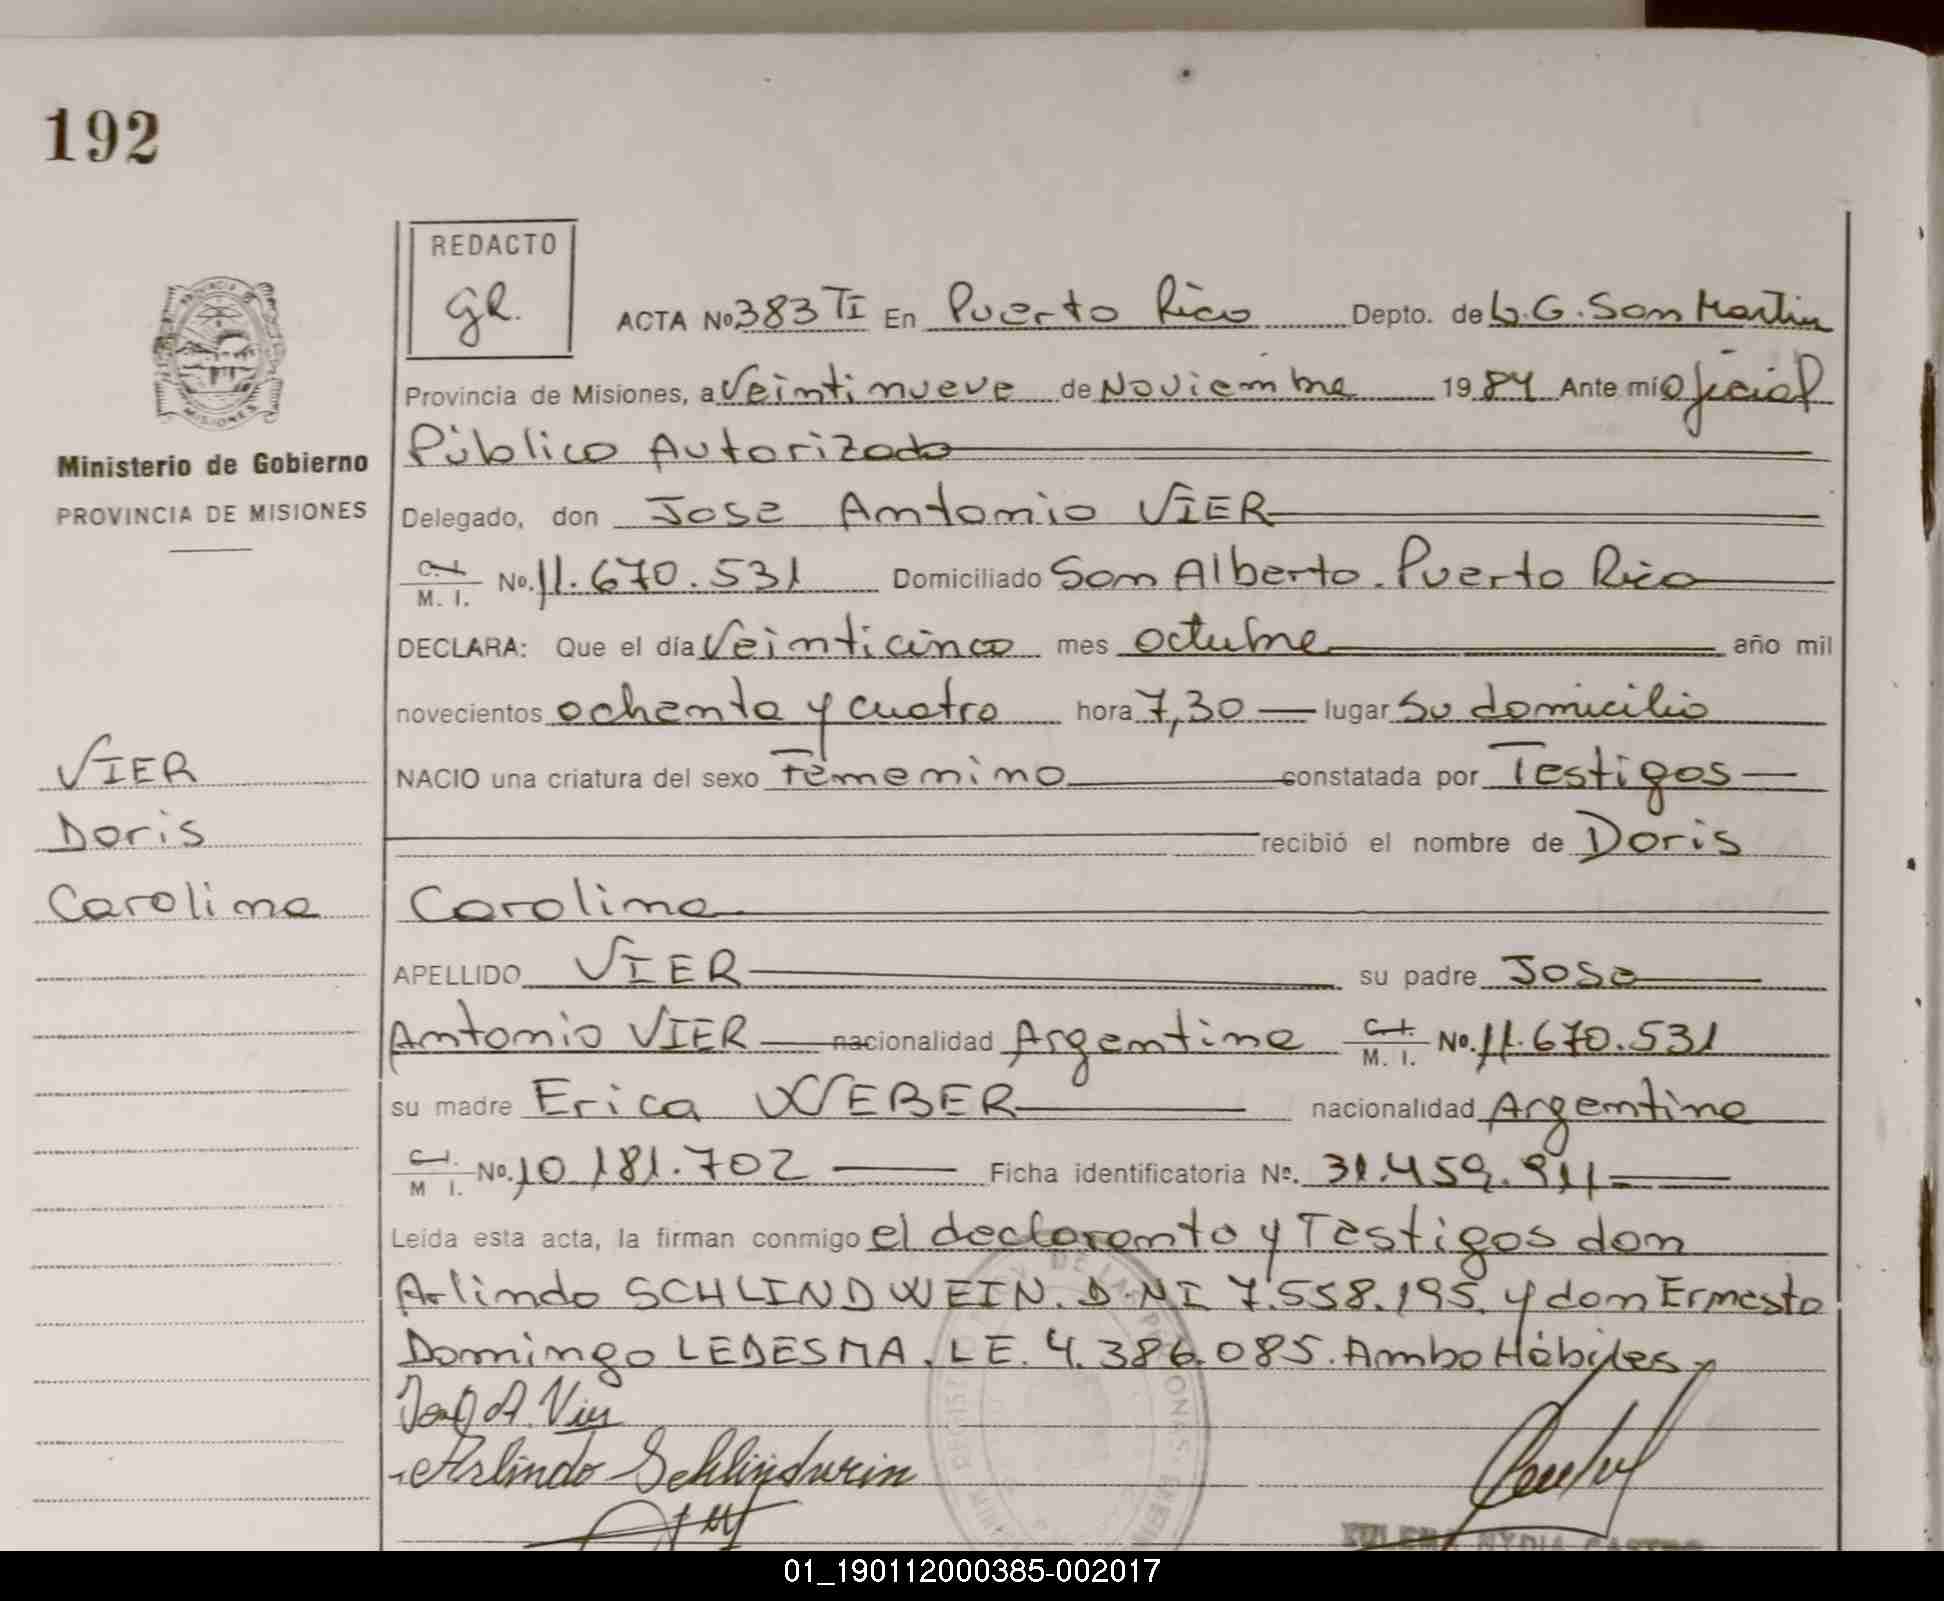 192
REDACTO
GR.
ACTA No 383 TI En Puerto Rico Depto. de L.G. San Martin
Provincia de Misiones, a Veintinueve de Noviembre 1984 Ante mi Oficial
Público Autorizado
Delegado, don Jose Antonio VIER
C.I. M. I. No. 11.670.531 Domiciliado San Alberto. Puerto Rico
DECLARA: Que el día Veinticinco mes octubre año mil
novecientos ochenta y cuatro hora 7,30 lugar Su domicilio
NACIO una criatura del sexo Femenino constatada por Testigos
recibió el nombre de Doris
Carolina
APELLIDO VIER su padre Jose
Antonio VIER nacionalidad Argentina C.I. M. I. No. 11.670.531
su madre Erica WEBER nacionalidad Argentina
C.I. M I. No. 10.181.702 Ficha identificatoria No. 31.459.911
Leída esta acta, la firman conmigo el declarante y Testigos don
Arlindo SCHLINDWEIN. D.NI 7.558.195. y don Ernesto
Domingo LEDESMA. LE. 4.386.085. Ambo Hábiles
José A. Vier
Arlindo Schlindwein
PROVINCIA DE MISIONES
Ministerio de Gobierno
PROVINCIA DE MISIONES
VIER
Doris
Carolina
DE LAS PERSONAS
NYDIA CASTRO
01_190112000385-002017